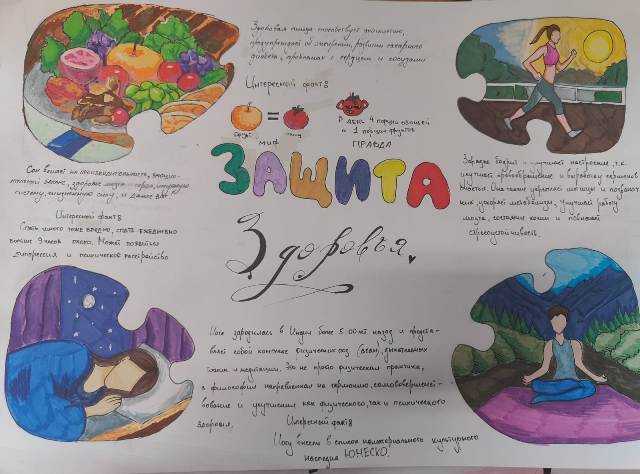 Здоровая пища способствует похудению,
предупреждает от ожирения, развития сахарного
диабета, проблемах с сердцем и сосудами
Интересный факт:
=
В день 4 порции овощей
и 1 порция фруктов
миф
ПРАВДА
ЗАЩИТА
Здоровья
Сон влияет на производительность, эмоцио-
нальный баланс, здоровье мозга и сердца, иммунную
систему, и даже вес!
Интересный факт:
Спать много тоже вредно, спать ежедневно
больше 9 часов плохо. Может появиться
депрессия и психическое расстройство
Зарядка бодрит и улучшает настроение, т.к.
улучшает кровообращение и выработку гормонов
Она также укрепляет мышцы и позвоноч-
ник, ускоряет метаболизм, улучшает работу
мозга, состояние кожи и повышает
стрессоустойчивость.
Йога зародилась в Индии более 5 00 лет назад и представ-
ляет собой комплекс физических поз (асан), дыхательных
техник и медитации. Это не просто физическая практика,
а философия направленная на гармонию, самосовершенст-
вование и улучшение как физического, так и психического
здоровья.
Интересный факт:
Йогу внесли в список нематериального культурного
наследия ЮНЕСКО.